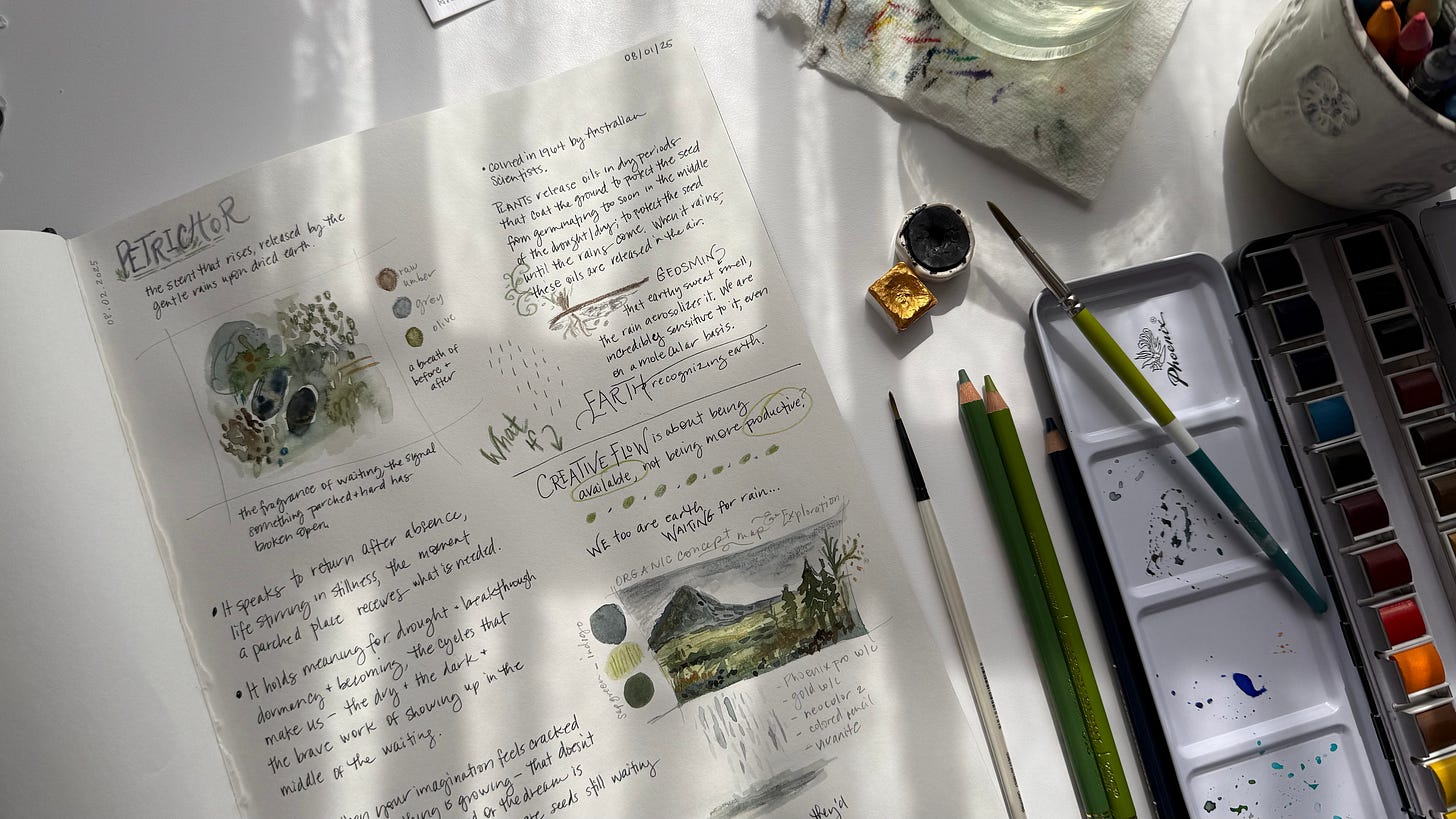 08.02.2025
PETRICHOR
the scent that rises, released by the
gentle rains upon dried earth.
raw
umber
grey
olive
a breath of
before +
after
the fragrance of waiting, the signal
something parched + hard has
broken open.
• It speaks to return after a absence,
life stirring in stillness, the moment
a parched place receives what is needed.
• It holds meaning for drought + breakthrough
dormancy + becoming, the cycles that
make us – the dry + the dark +
the brave work of showing up in the
middle of the waiting.
your imagination feels cracked
thing is growing – that doesn't
or the dream is
seeds still waiting
08/01/25
• coined in 1964 by Australian
Scientists.
PLANTS release oils in dry periods
that coat the ground to protect the seed
from germinating too soon in the middle
of the drought/dry, to protect the seed
until the rains come. When it rains,
these oils are released in the air.
GEOSMIN
that earthy sweat smell,
the rain aerosolizes it. We are
incredibly sensitive to it, even
on a molecular basis.
EARTH recognizing earth.
What
if?
CREATIVE FLOW is about being
available, not being more productive?
WE too are earth
WAITING for rain...
ORGANIC concept map Exploration
indigo
sap green
- Phoenix pro w/c
- gold w/c
- neocolor 2
- colored pencil
- vivanite
they'd
Phoenix